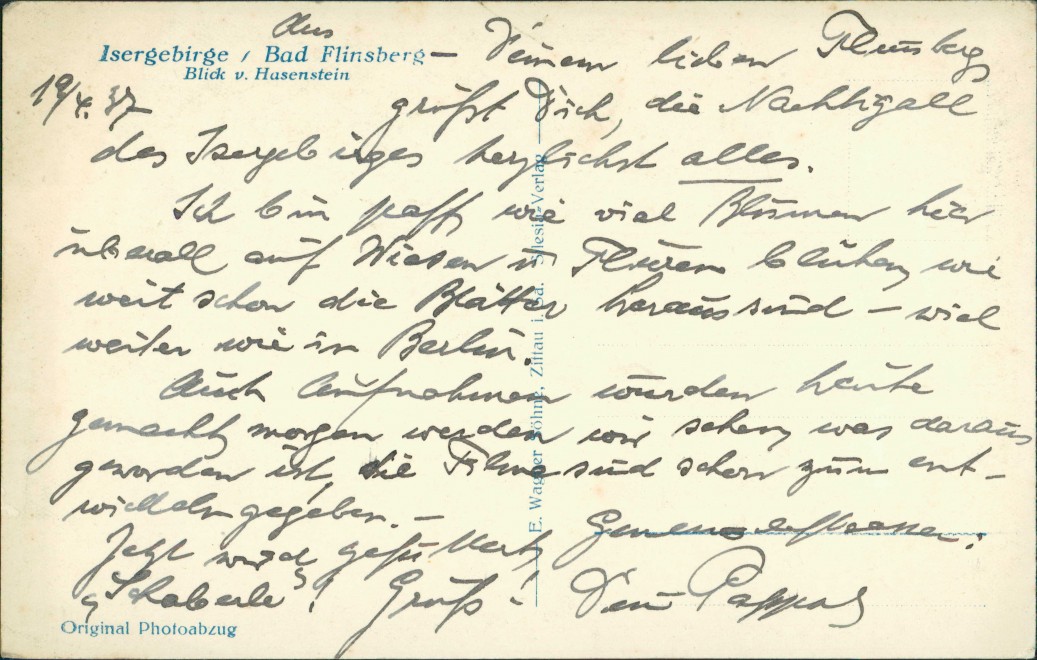 Aus
Isergebirge / Bad Flinsberg
– Deinem lieben Flinsberg
Blick v. Hasenstein
19/4. 37
grüßt Dich, die Nachtigall
des Isergebirges herzlichst alles.
Ich bin paff, wie viel Blumen hier
überall auf Wiesen u Fluren blühen, wie
weit schon die Blätter heraus sind – viel
weiter wie in Berlin.
Auch Aufnahmen wurden heute
gemacht, morgen werden wir sehen, was daraus
geworden ist, die Filme sind schon zum ent-
wickeln gegeben. –
Jetzt wird gefuttert,
"Schaberle"! Gruß! Dein Pappas
E. Wagner Söhne, Zittau i. Sa. Silesia-Verlag
Original Photoabzug